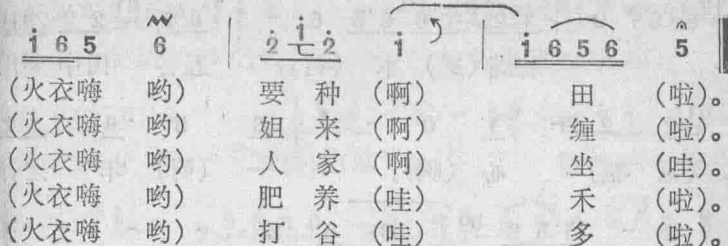 i 6 5 6 | 2 i 2 i | i 6 5 6 5
(火衣嗨 哟) 要 种 (啊) 田 (啦)。
(火衣嗨 哟) 姐 来 (啊) 缠 (啦)。
(火衣嗨 哟) 人 家 (啊) 坐 (哇)。
(火衣嗨 哟) 肥 养 (哇) 禾 (啦)。
(火衣嗨 哟) 打 谷 (哇) 多 (啦)。